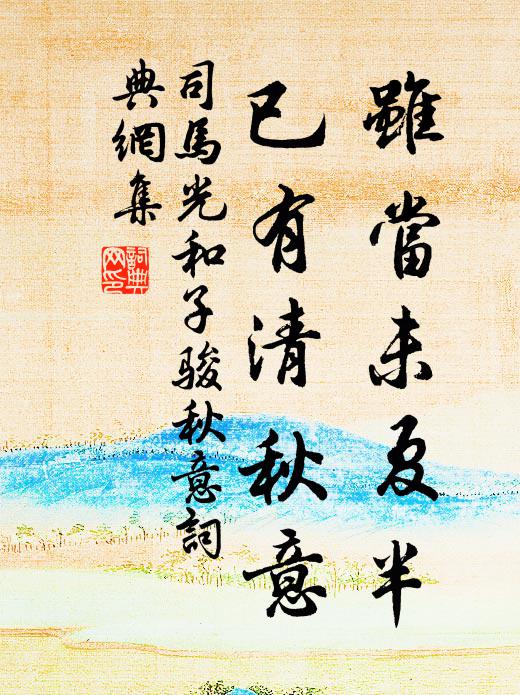 雖當未夜半
已有清秋意
司馬光和子骏秋意詞
典網集
詞典
网印